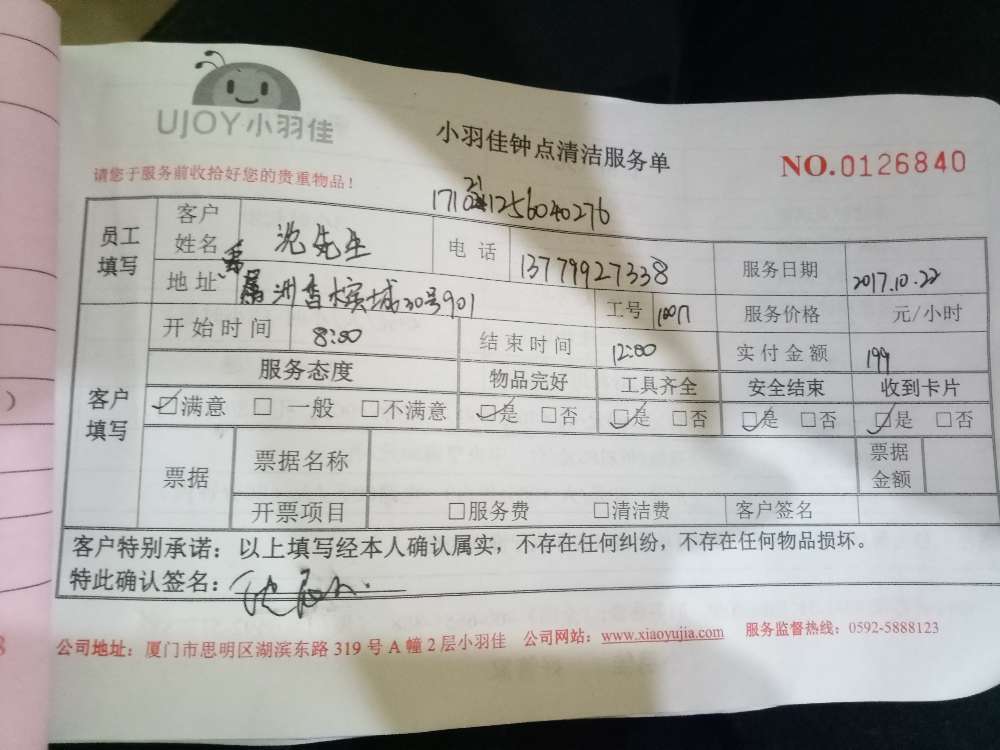 UJOY·小羽佳
小羽佳钟点清洁服务单
NO.0126840
请您于服务前收拾好您的贵重物品！
员工填写
客户姓名 沈先生 电话 13779927338 服务日期 2017.10.22
地址 洲香槟城20号901 工号 服务价格 元/小时
客户填写
开始时间 8:00 结束时间 12:00 实付金额 199
服务态度 物品完好 工具齐全 安全结束 收到卡片
☑满意 □一般 □不满意 ☑是 □否 ☑是 □否 ☑是 □否 ☑是 □否
票据 票据名称 票据金额
开票项目 □服务费 □清洁费 客户签名
客户特别承诺：以上填写经本人确认属实，不存在任何纠纷，不存在任何物品损坏。
特此确认签名：
公司地址：厦门市思明区湖滨东路 319 号 A 幢 2 层小羽佳 公司网站：www.xiaoyujia.com 服务监督热线：0592-5888123